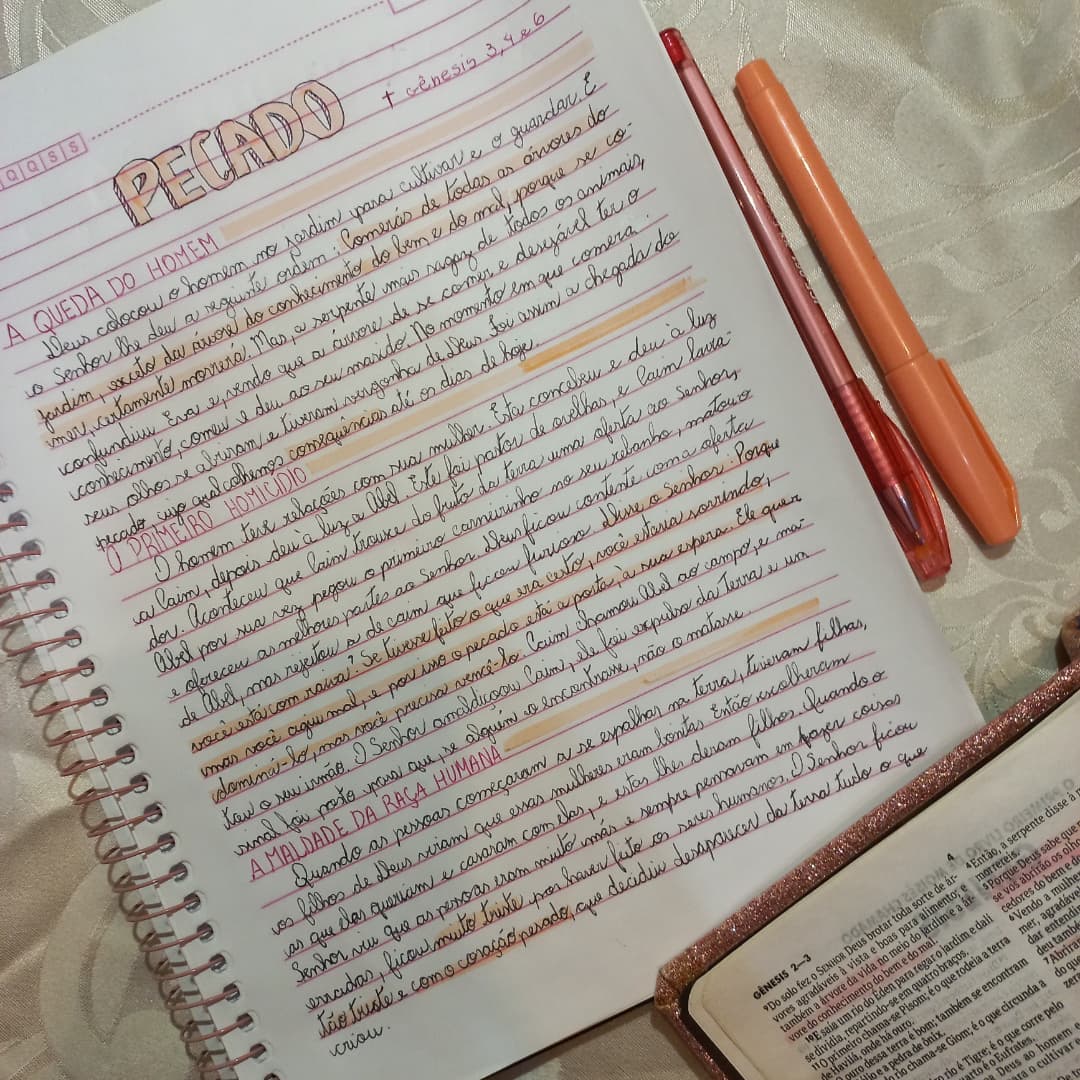 Q Q S S
PECADO
† Gênesis 3, 4 e 6
A QUEDA DO HOMEM
Deus colocou o homem no jardim para cultivar e o guardar. E
o Senhor lhe deu a seguinte ordem: Comerás de todas as árvores do
jardim, exceto da árvore do conhecimento do bem e do mal, porque se co-
mer, certamente morrerá. Mas, a serpente mais sagaz de todos os animais,
confundiu Eva e, vendo que a árvore de se comer e desejável ter o
conhecimento, comeu e deu ao seu marido. No momento em que comera
seus olhos se abriram e tiveram vergonha de Deus. Foi assim a chegada do
pecado cujo qual colhemos consequências até os dias de hoje.
O PRIMEIRO HOMICIDIO
O homem teve relações com sua mulher. Esta concebeu e deu à luz
a Caim, depois deu à luz a Abel. Este foi pastor de ovelhas, e Caim lavra-
dor. Aconteceu que Caim trouxe do fruto da terra uma oferta ao Senhor,
Abel por sua vez, pegou o primeiro carneirinho no seu rebanho, matou-o
e ofereceu as melhores partes ao Senhor. Deus ficou contente com a oferta
de Abel, mas rejeitou a de Caim que ficou furioso. Disse o Senhor: Porque
você está com raiva? Se tivesse feito o que era certo, você estaria sorrindo,
mas você agiu mal, e por isso o pecado está a porta, à sua espera. Ele quer
dominá-lo, mas você precisa vencê-lo. Caim chamou Abel ao campo, e ma-
tou o seu irmão. O Senhor amaldiçoou Caim, ele foi expulso da terra e um
sinal foi posto para que, se alguém o encontrasse, não o matasse.
A MALDADE DA RAÇA HUMANA
Quando as pessoas começaram a se espalhar na terra, tiveram filhas,
os filhos de Deus viram que essas mulheres eram bonitas. Então escolheram
as que elas queriam e casaram com elas, e estas lhes deram filhos. Quando o
Senhor viu que as pessoas eram muito más e sempre pensavam em fazer coisas
erradas, ficou muito triste por haver feito os seres humanos. O Senhor ficou
tão triste e com o coração pesado, que decidiu desaparecer da terra tudo o que
criou.
GÊNESIS 2—3
4
⁹Do solo fez o SENHOR Deus brotar toda sorte de ár-
vores agradáveis à vista e boas para alimento; e
também a árvore da vida no meio do jardim e a ár-
vore do conhecimento do bem e do mal.
¹⁰E saía um rio do Éden para regar o jardim e dali
se dividia, repartindo-se em quatro braços.
¹¹O primeiro chama-se Pisom; é o que rodeia a terra
de Havilá, onde há ouro.
O ouro dessa terra é bom; também se encontram
e a pedra de ônix.
rio chama-se Giom; é o que circunda a
rio é Tigre; é o que corre pelo
arto é o Eufrates.
Deus ao homem e
para o cultivar e
⁴Então, a serpente disse à
morrereis.
⁵Porque Deus sabe que
se vos abrirão os olho
cedores do bem e do
⁶Vendo a mulhe
mer, agradável
dar entendim
deu també
⁷Abrira
do que